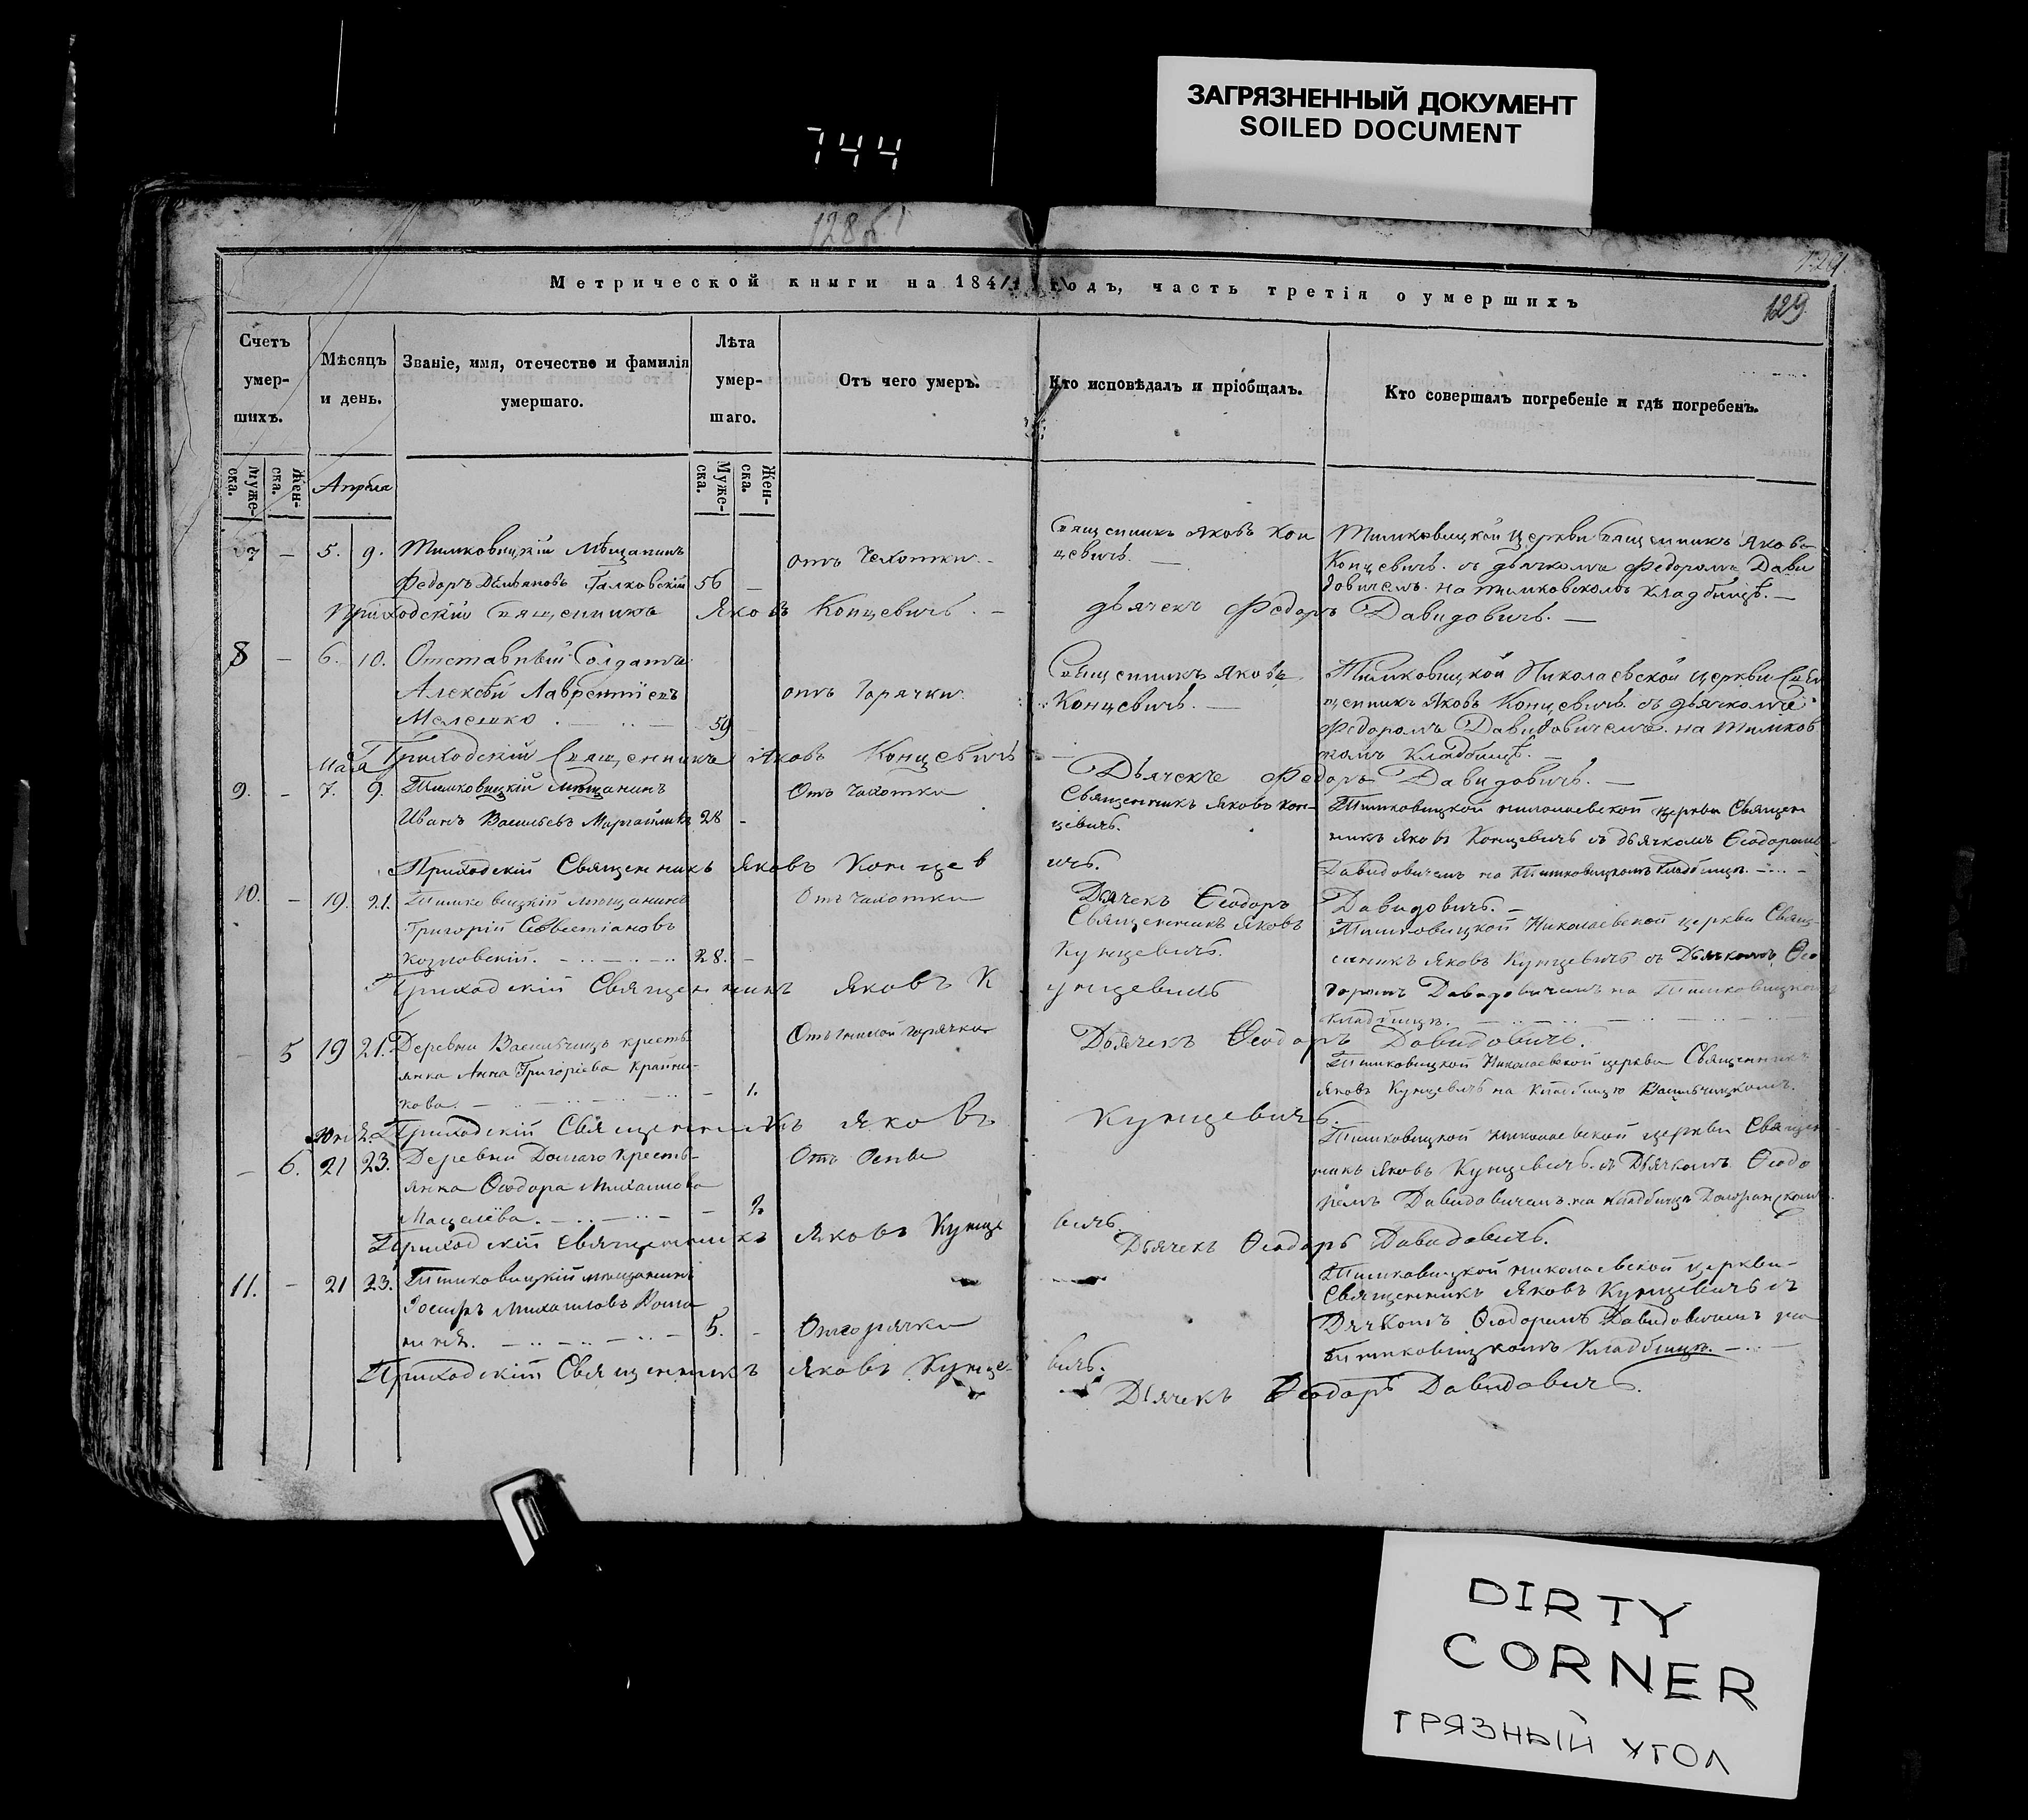 ЗАГРЯЗНЕННЫЙ ДОКУМЕНТ
SOILED DOCUMENT
744
128 об.
129
Метрической книги на 1844 годъ, часть третія о умершихъ
Счетъ умер-шихъ.
Мѣсяцъ и день.
Званіе, имя, отечество и фамилія умершаго.
Лѣта умер-шаго.
Отъ чего умеръ.
Кто исповѣдалъ и пріобщалъ.
Кто совершалъ погребеніе и гдѣ погребенъ.
Муже-ска. Жен-ска. Апрѣля Муже-ска. Жен-ска.
7 – 5. 9. Тимковицкій Мѣщанинъ
Федоръ Демьяновъ Галковскій 56 –
отъ Чахотки. –
Священникъ Яковъ Кон
цевичъ. –
Тимковицкой Церкви Священникъ Яковъ
Концевичъ. съ дьячкомъ Федоромъ Дави
довичемъ. на тимковскомъ кладбищѣ. –
Приходскій Священникъ Яковъ Концевичъ. – дьячекъ Федоръ Давидовичъ. –
8 – 6. 10. Отставный Солдатъ
Алексѣй Лаврентіевъ
Мелешко . – 59
отъ Горячки.
Священникъ Яковъ
Концевичъ. –
Тимковицкой Николаевской церкви Свя
щенникъ Яковъ Концевичъ. съ дьячкомъ
Федоромъ Давидовичемъ. на Тимков
комъ кладбищѣ. –
Приходскій Священникъ Яковъ Концевичъ – Дьячекъ Федоръ Давидовичъ. –
Мая
9. – 7. 9. Тимковицкій мѣщанинъ
Иванъ Васильевъ 28 –
Отъ Чахотки
Священникъ Яковъ Кон-
цевичъ.
Тимковицкой николаевской церкви Священ
никъ Яковъ Концевичъ съ дьячкомъ Ѳеодоромъ
Давидовичемъ на Тимковицкомъ кладбищѣ. –
Приходскій Священникъ Яковъ Концев
ичъ.
Дьячекъ Ѳеодоръ Давидовичъ. –
10. – 19. 21. Тимковицкій мѣщанинъ
Григорій
Козловскій. – 28. –
Отъ Чахотки
Священникъ Яковъ
Кунцевичъ.
Тимковицкой Николаевской церкви Свящ-
енникъ Яковъ Кунцевичъ съ Дьячкомъ Ѳео
доромъ Давидовичемъ на Тимковицком
кладбищѣ.
Приходскій Священникъ Яковъ К
унцевичъ
Дьячекъ Ѳеодоръ Давидовичъ.
– 5 19 21. Деревни Васильчицъ кресть
янка Анна Григоріева Крайни-
кова. – 1.
горячки
Тимковицкой Николаевской церкви Священникъ
Яковъ Кунцевичъ на Кладбищѣ Васильчицкомъ.
Приходскій Священникъ Яковъ Кунцевичъ.
– 6. 21 23. Деревни кресть-
янка Ѳеодора Михаилова
– 2
Отъ Оспы
Тимковицкой николаевской церкви Священ-
никъ Яковъ Кунцевичъ. съ Дьячкомъ Ѳеодо
ромъ Давидовичемъ. на кладбищѣ
Приходскій Священникъ Яковъ Кунце
вичъ.
Дьячекъ Ѳеодоръ Давидовичъ.
11. – 21 23. Тимковицкій мѣщанинъ
Михаиловъ
– 5. –
Отъ горячки
Тимковицкой николаевской церкви –
Священникъ Яковъ Кунцевичъ съ
Дячкомъ Ѳеодоромъ Давидовичемъ на
Тимковицкомъ Кладбищѣ. –
Приходскій Священникъ Яковъ Кунце-
вичъ.
Дьячекъ Ѳеодоръ Давидовичъ.
DIRTY
CORNER
ГРЯЗНЫЙ УГОЛ